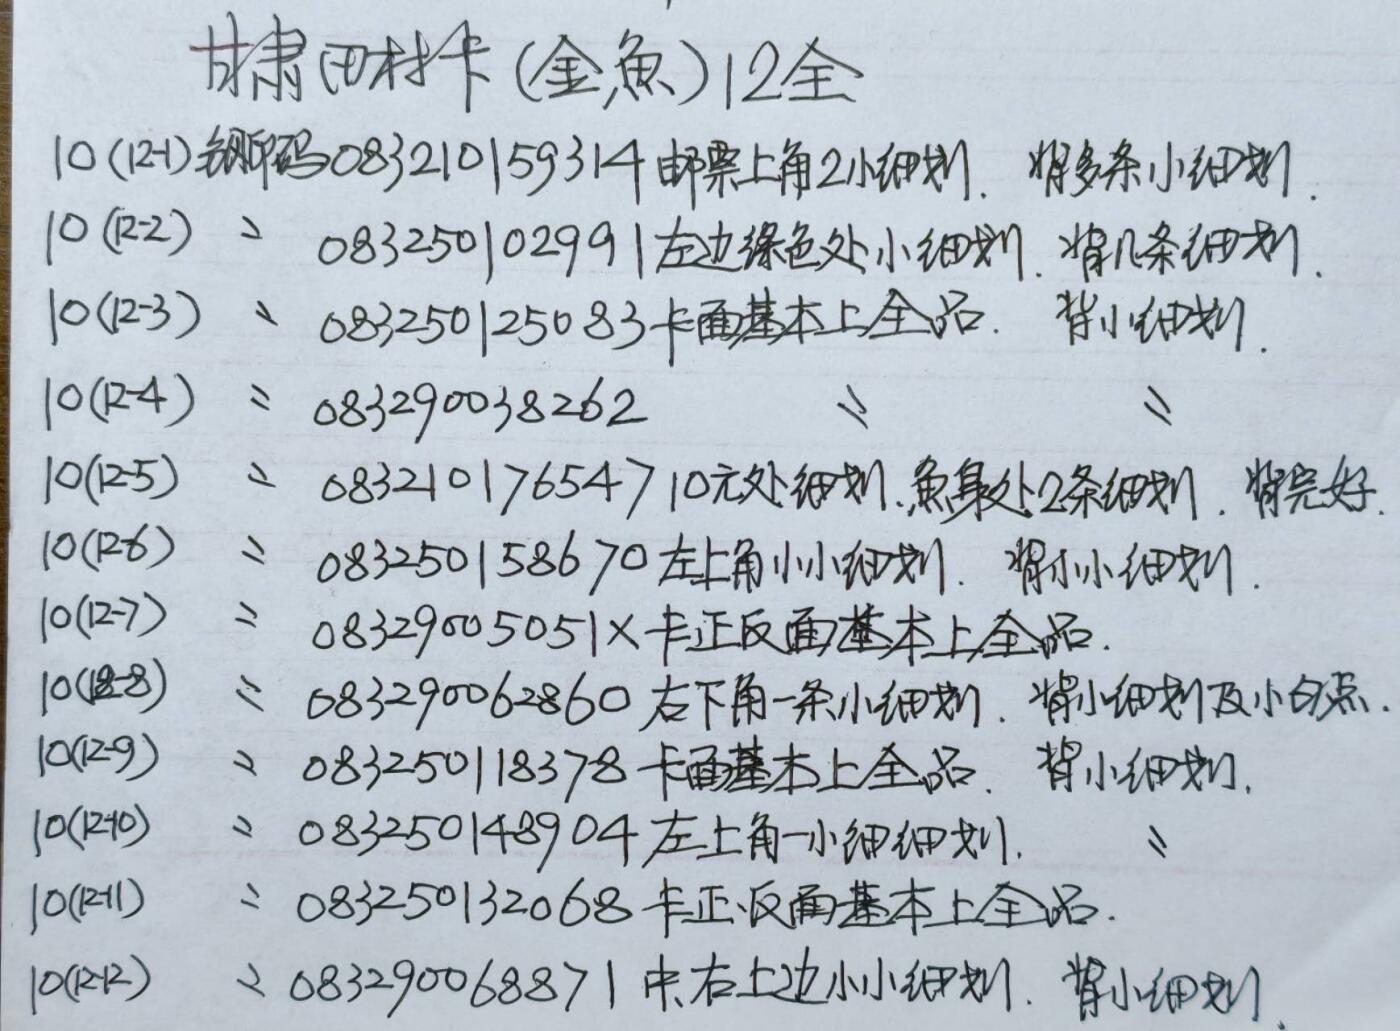 甘肃田村卡(金魚)12全
10(12-1)钢印码083210159314邮票上角2小细划. 背多条小细划.
10(12-2) 〃 083250102991左边绿色处小细划. 背几条细划.
10(12-3) 〃 083250125083卡面基本上全品. 背小细划.
10(12-4) 〃 083290038262 〃 〃
10(12-5) 〃 083210176547 10元处细划.魚身处2条细划. 背完好.
10(12-6) 〃 083250158670左上角小小细划. 背小小细划.
10(12-7) 〃 08329005051X卡正反面基本上全品.
10(12-8) 〃 083290062860右下角一条小细划. 背小细划及小白点.
10(12-9) 〃 083250118378卡面基本上全品. 背小细划.
10(12-10) 〃 083250148904左上角一小细细划. 〃
10(12-11) 〃 083250132068卡正.反面基本上全品.
10(12-12) 〃 083290068871中.右上边小小细划. 背小细划.